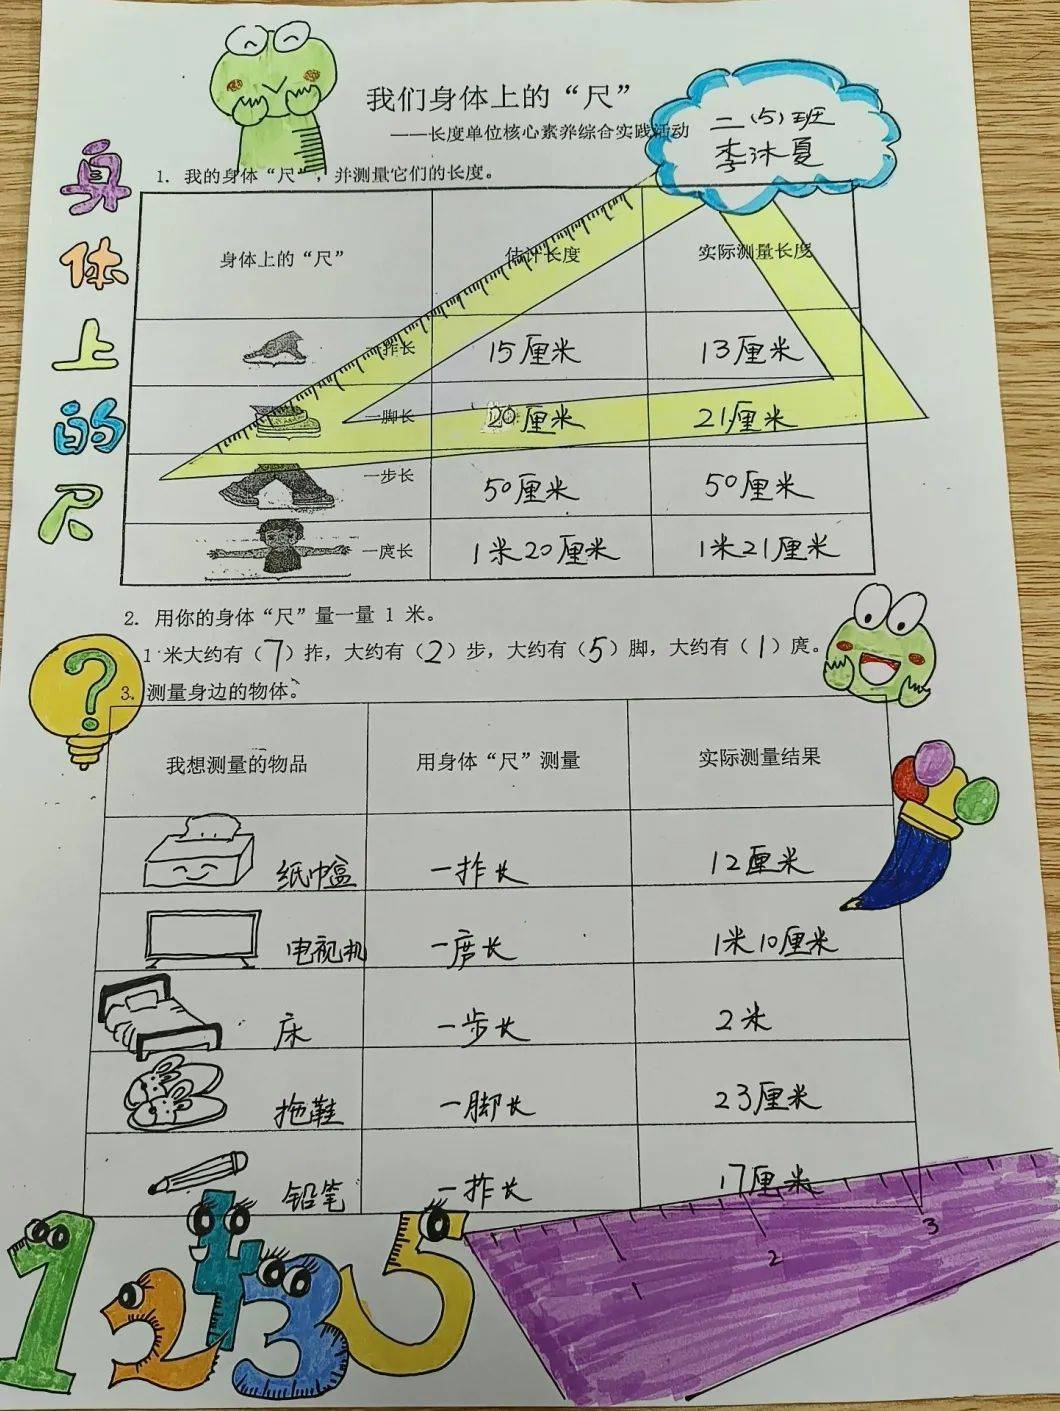 我们身体上的“尺”
——长度单位核心素养综合实践活动
二(5)班
李沐夏
身体上的尺
1. 我的身体“尺”，并测量它们的长度。
身体上的“尺” 估计长度 实际测量长度
一拃长 15厘米 13厘米
一脚长 20厘米 21厘米
一步长 50厘米 50厘米
一庹长 1米20厘米 1米21厘米
2. 用你的身体“尺”量一量 1 米。
1 米大约有（7）拃，大约有（2）步，大约有（5）脚，大约有（1）庹。
?
3. 测量身边的物体。
我想测量的物品 用身体“尺”测量 实际测量结果
纸巾盒 一拃长 12厘米
电视机 一庹长 1米10厘米
床 一步长 2米
拖鞋 一脚长 23厘米
铅笔 一拃长 17厘米
1 2 4 3 5
1 2 3